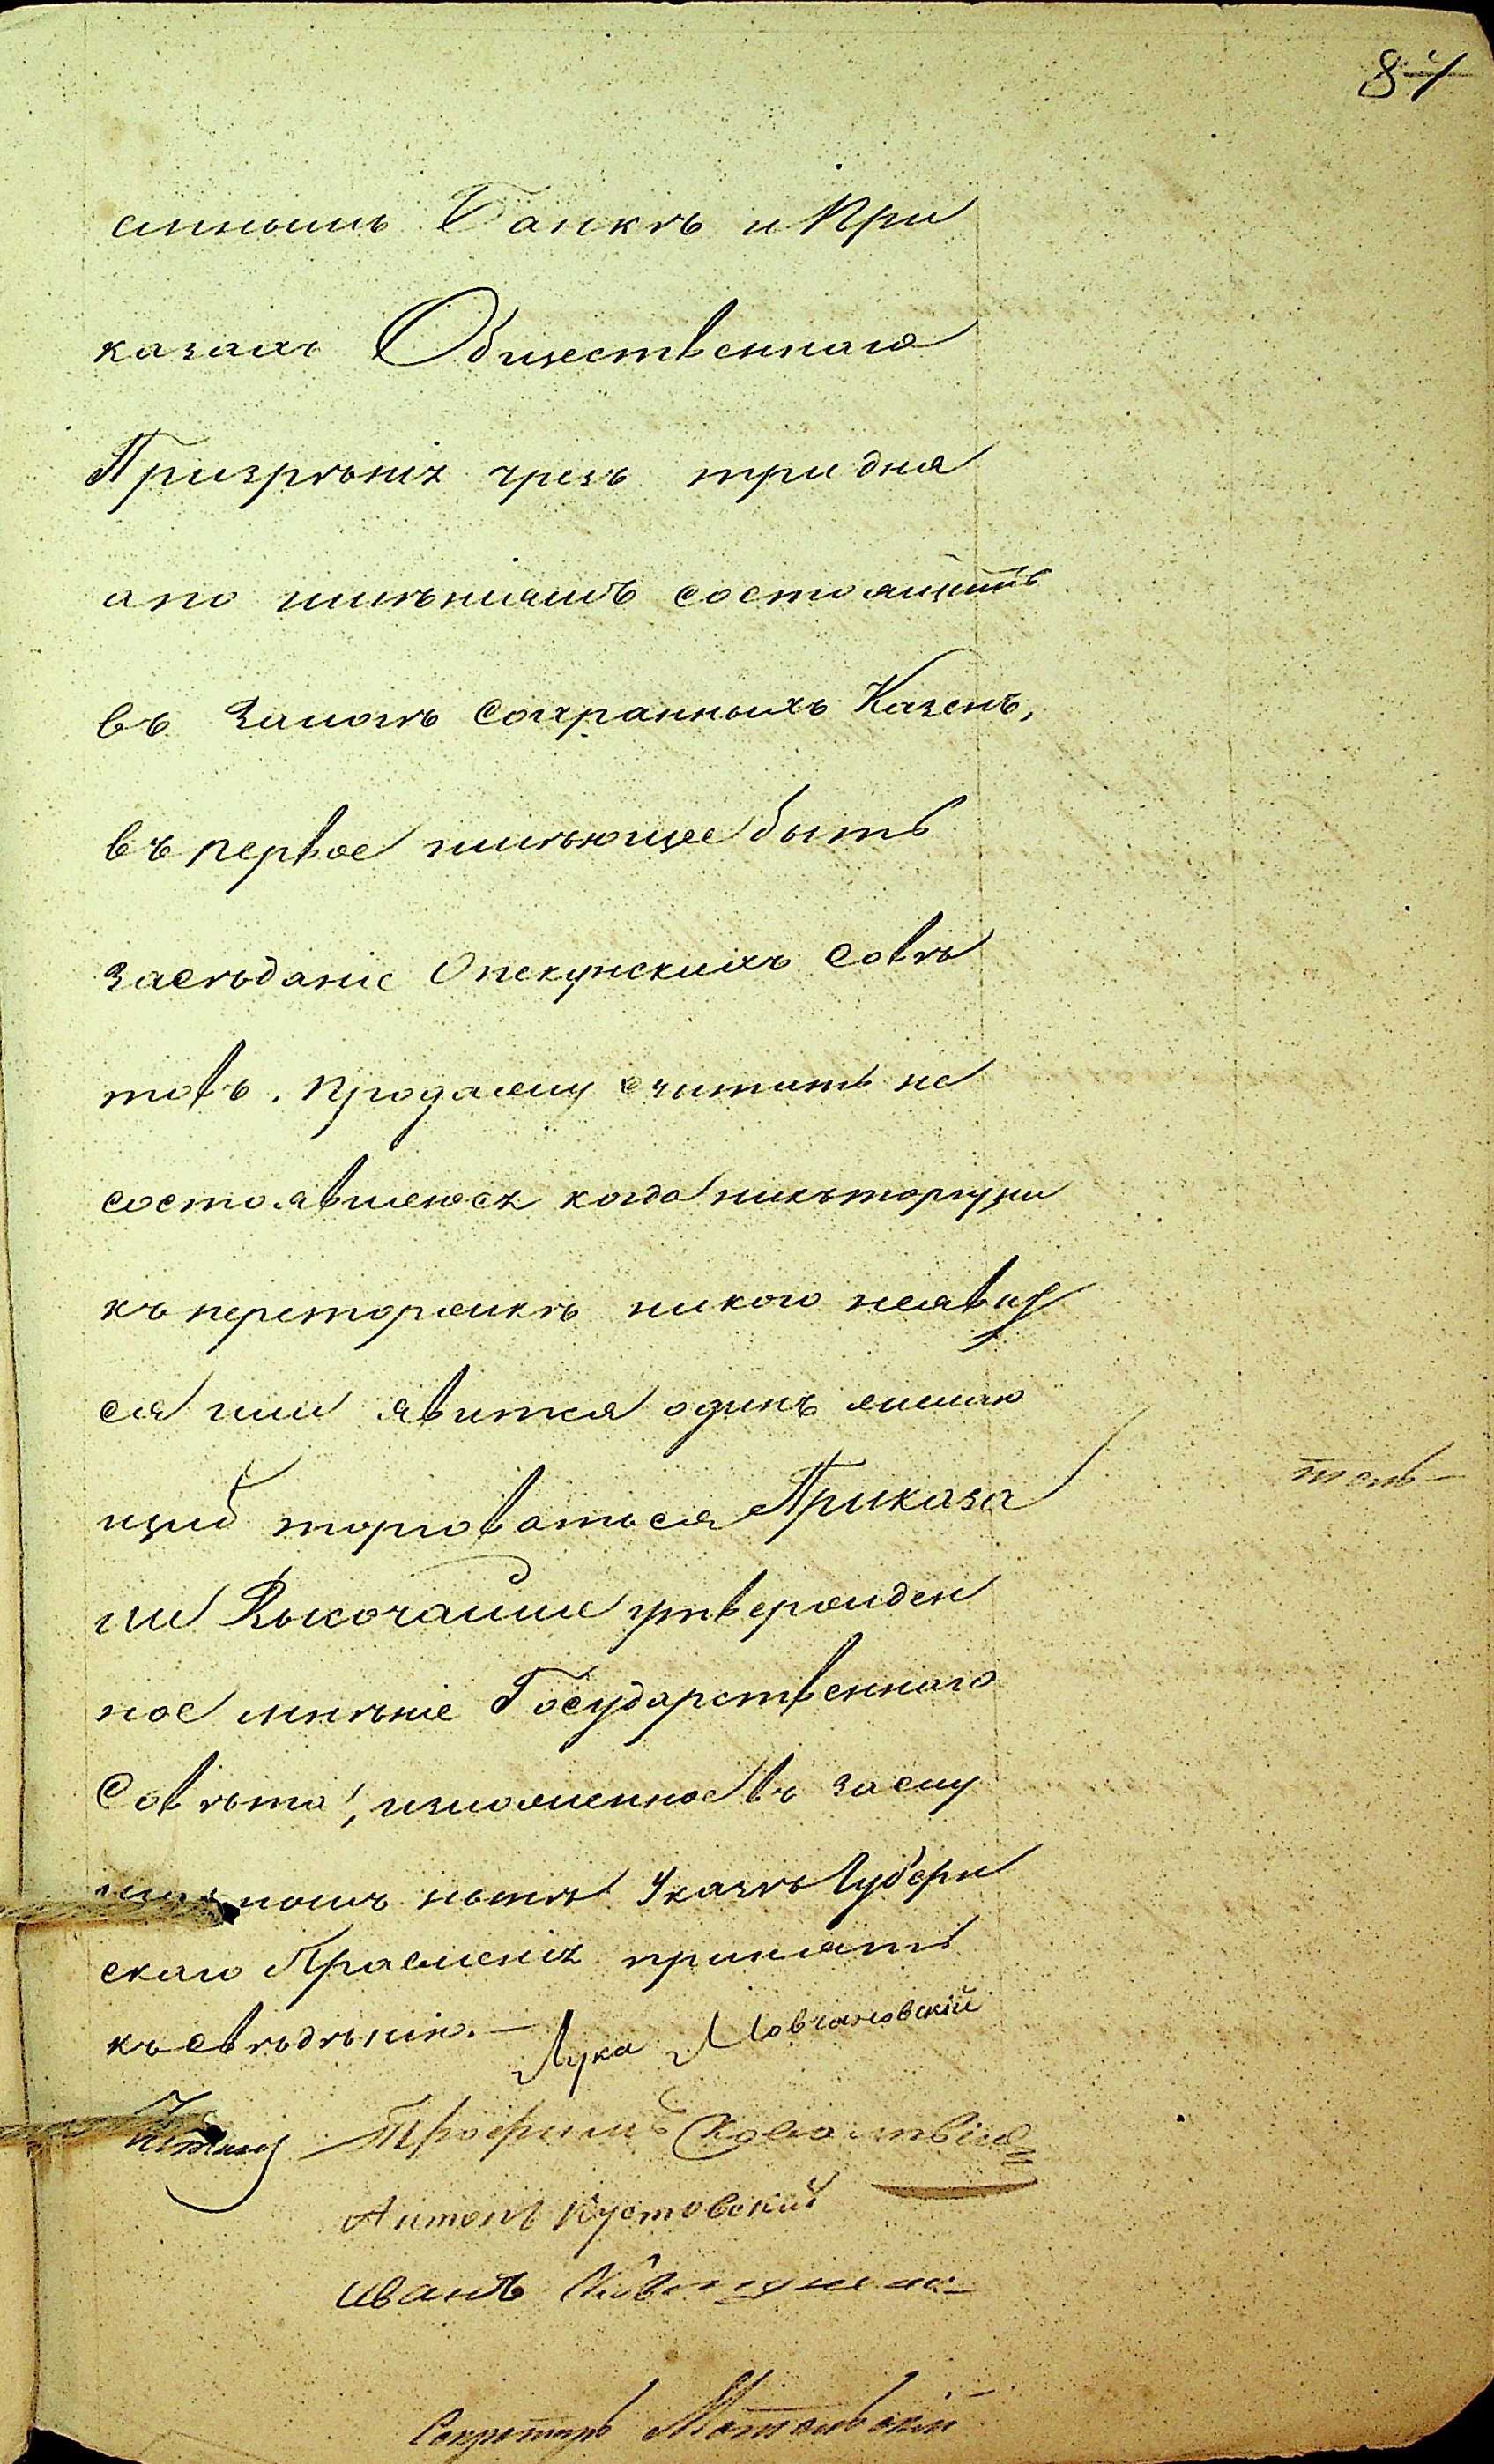 84
емномъ Банкѣ и При
казахъ Общественнаго
Призрѣнія чрезъ три дня
а по имѣніямъ состоящимъ
въ залогѣ сохранныхъ Казенъ,
въ первое имѣющее быть
засѣданіе Опекунскихъ Совѣ
товъ. Продажу считать не
состоявшеюся когда никъторгу ни
къ переторжкѣ никого неявит
ся или явится одинъ желаю
щій торговаться Приказа
ли Высочайше утвержден
ное мнѣніе Государственнаго
Совѣта, изложенное въ заслу
номъ нынѣ Указѣ Губерн
скаго Правленія принять
къ свѣдѣнію. —
Лука Мовчановскій
Трофимъ
Антонъ Кустовскій
Иванъ
Секретарь